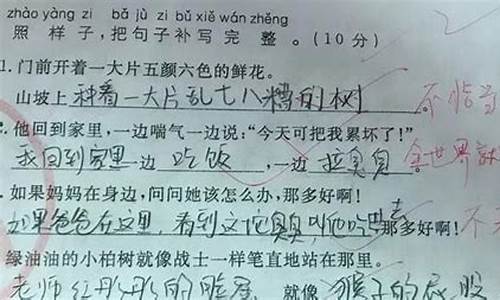 zhào yàng zi bǎ jù zi bǔ xiě wán zhěng
照 样 子，把 句 子 补 写 完 整 。(10 分)
1. 门前开着一大片五颜六色的鲜花。
山坡上种着一大片乱七八糟的树。
2. 他回到家里，一边喘气一边说：“今天可把我累坏了！”
我回到家里一边吃饭，一边拉臭臭
3. 如果妈妈在身边，问问她该怎么办，那多好啊！
如果爸爸在这里，看到这坨臭臭叫他吃去那多好啊！
绿油油的小柏树就像战士一样笔直地站在那里。
老师红彤彤的脸蛋就像猴子的屁股